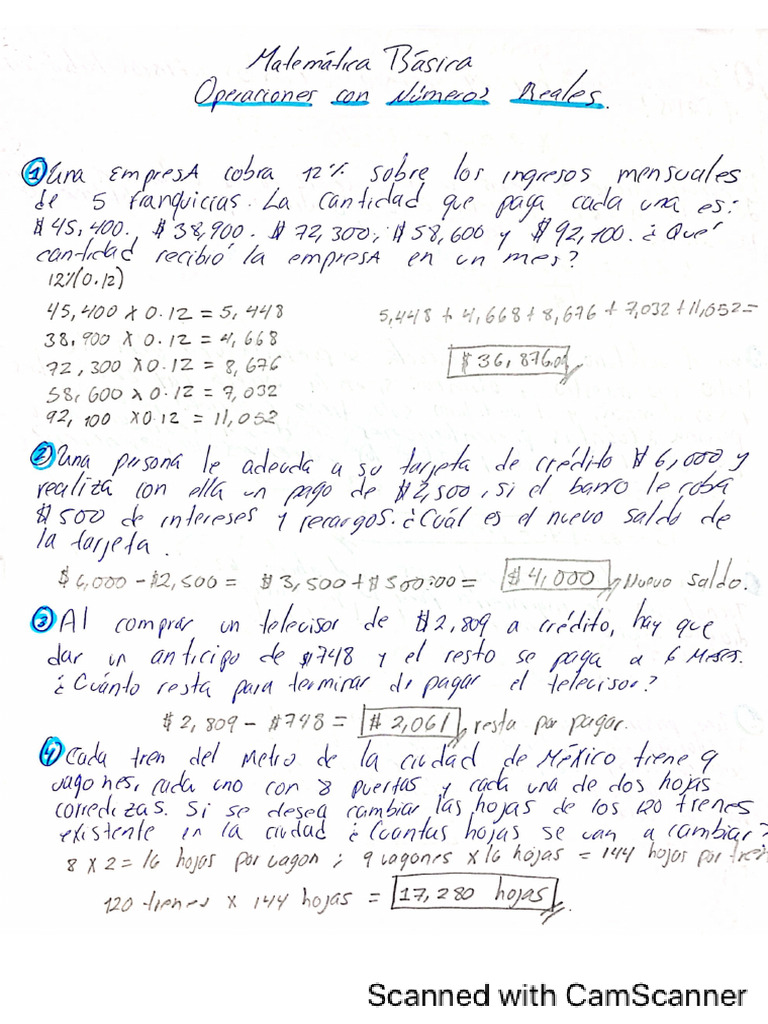 Matemática Básica
Operaciones con Números Reales.
① Una empresA cobra 12% sobre los ingresos mensuales
de 5 franquicias. La cantidad que paga cada una es:
$45,400. $38,900. $72,300; $58,600 y $92,100. ¿Qué
cantidad recibió la empresA en un mes?
12%(0.12)
45,400 x 0.12 = 5,448
5,448 + 4,668 + 8,676 + 7,032 + 11,052 =
38,900 x 0.12 = 4,668
$36,876.00
72,300 x 0.12 = 8,676
58,600 x 0.12 = 7,032
92,100 x 0.12 = 11,052
② Una persona le adeuda a su tarjeta de crédito $6,000 y
realiza con ella un pago de $2,500, si el banco le cobra
$500 de intereses y recargos. ¿Cuál es el nuevo saldo de
la tarjeta.
$6,000 - $2,500 = $3,500 + $500.00 = $4,000 Nuevo saldo.
③ Al comprar un televisor de $2,809 a crédito, hay que
dar un anticipo de $748 y el resto se paga a 6 meses.
¿Cuánto resta para terminar de pagar el televisor?
$2,809 - $748 = $2,061 resta por pagar.
④ Cada tren del Metro de la ciudad de México tiene 9
vagones, cada uno con 8 puertas y cada una de dos hojas
corredizas. Si se desea cambiar las hojas de los 120 trenes
existente en la ciudad ¿Cuantas hojas se van a cambiar?
8 x 2 = 16 hojas por vagon ; 9 vagones x 16 hojas = 144 hojas por tren
120 trenes x 144 hojas = 17,280 hojas
Scanned with CamScanner